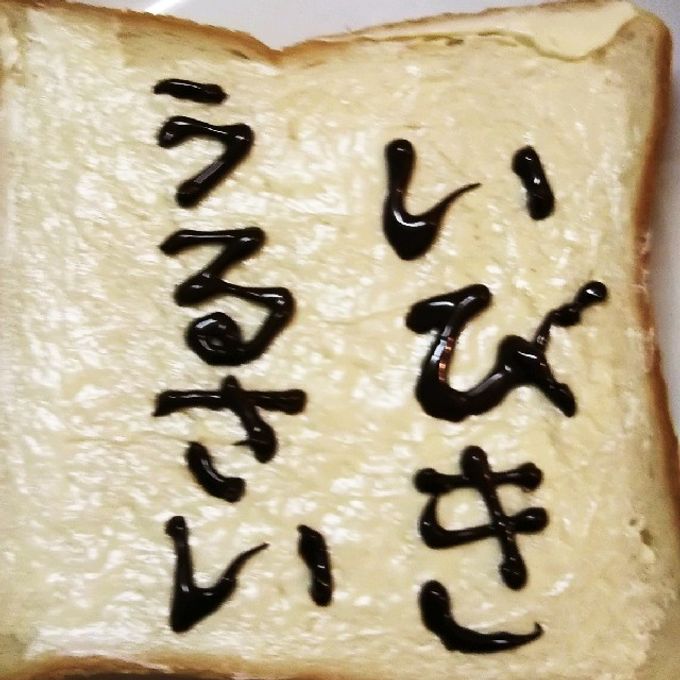 いびき
うるさい